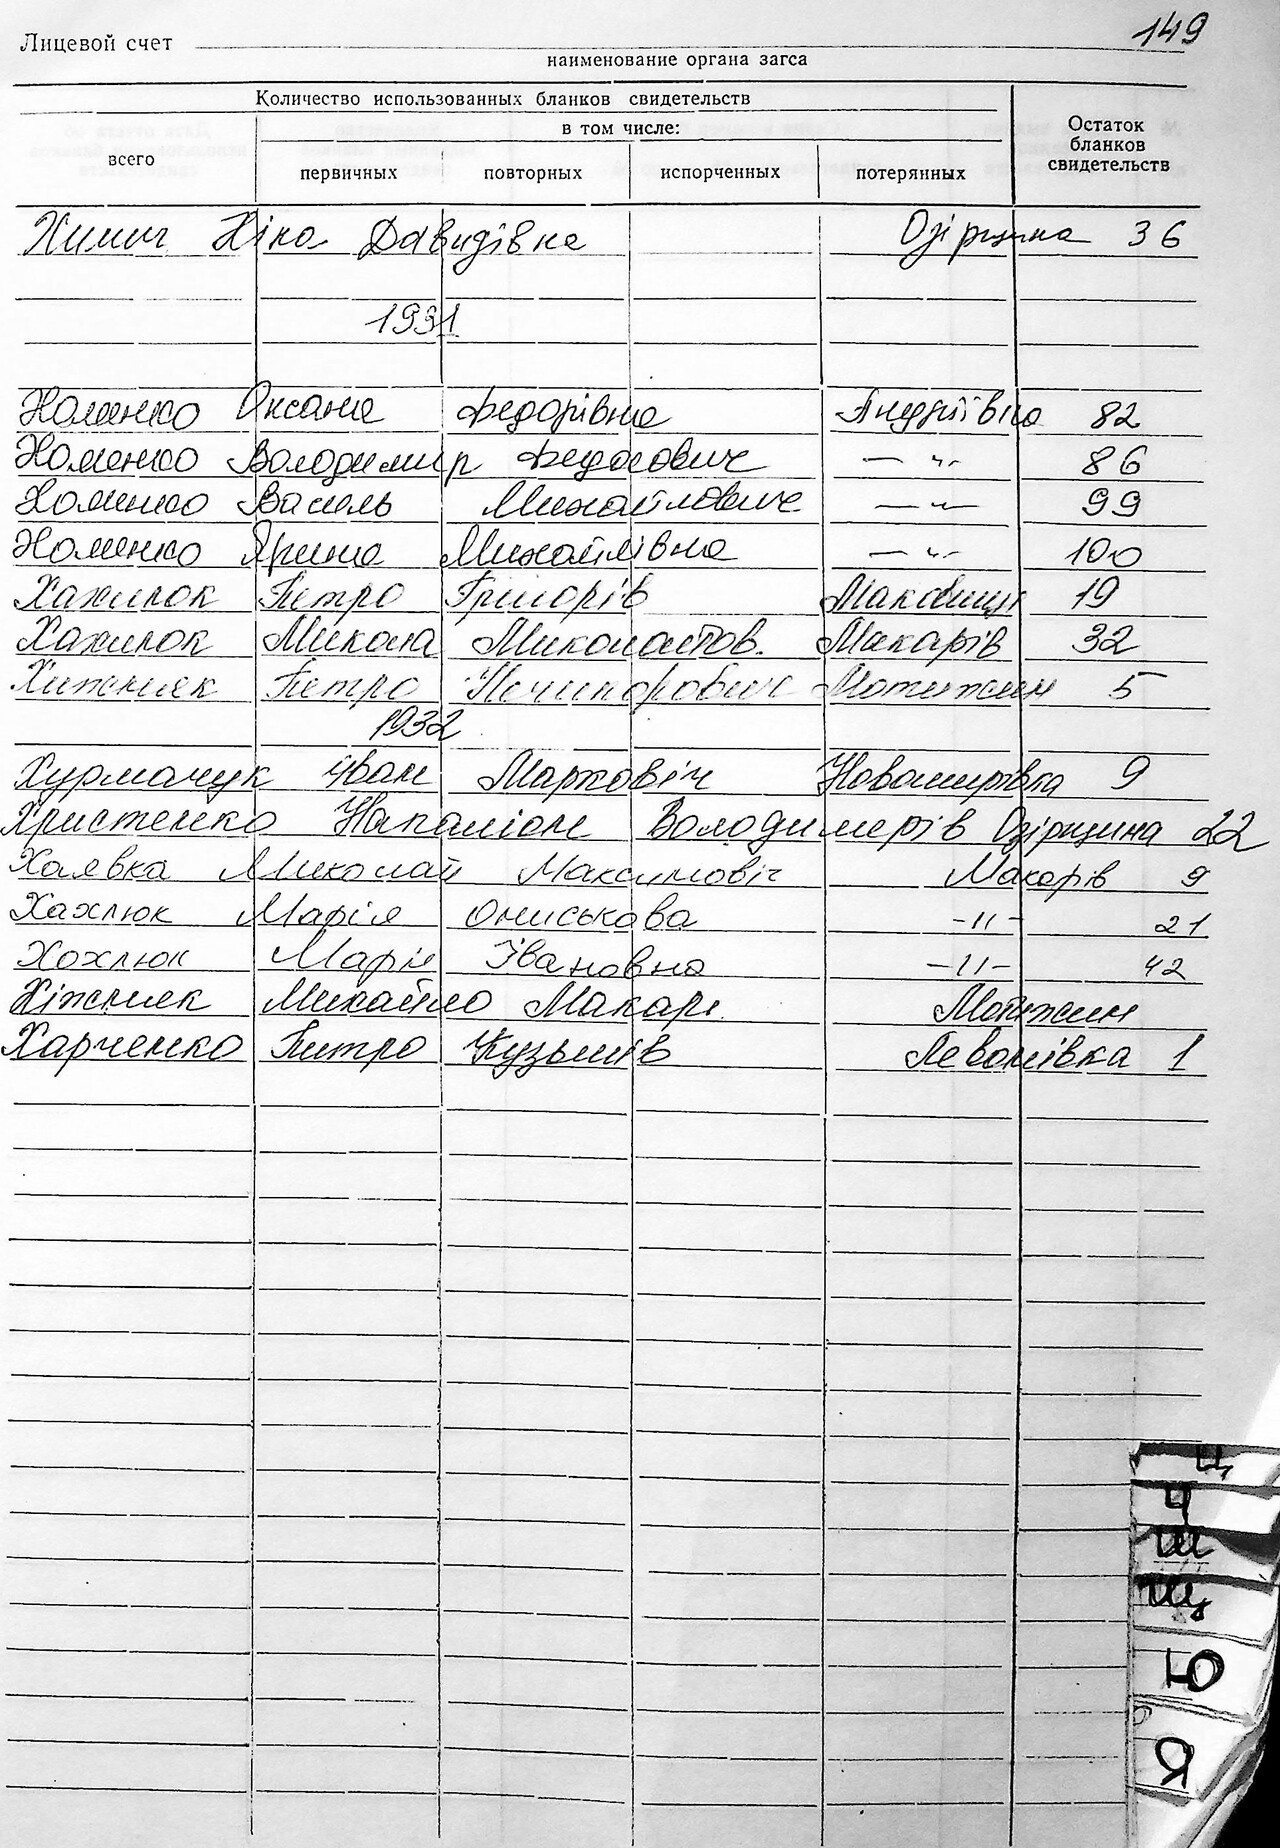 149
Лицевой счет
наименование органа загса
Количество использованных бланков свидетельств
Остаток бланков свидетельств
всего
в том числе:
первичных повторных испорченных потерянных
Химич Ніна Давидівна Озірщина 36
1931
Хоменко Оксана Федорівна Андріївка 82
Хоменко Володимир Федосович — „ — 86
Хоменко Василь Михайлович — „ — 99
Хоменко Ярина Михайлівна — „ — 100
Хахилок Петро Григорів 19
Хахилок Микола Макарів 32
Хижняк Петро Ничипорович Мотижин 5
1932
Хурманчук Іван Маркович 9
Христенко Володимерів Озірщина 22
Хаявка Миколай Максимовіч Макарів 9
Хахлюк Марія Ониськова -11- 21
Хохлюк Марія Івановна -11- 42
Хіжняк Михайло Макарі Мотижин
Харченко Питро Кузьмів Левонівка 1
Ц
Ч
Ш
Щ
Ю
Я